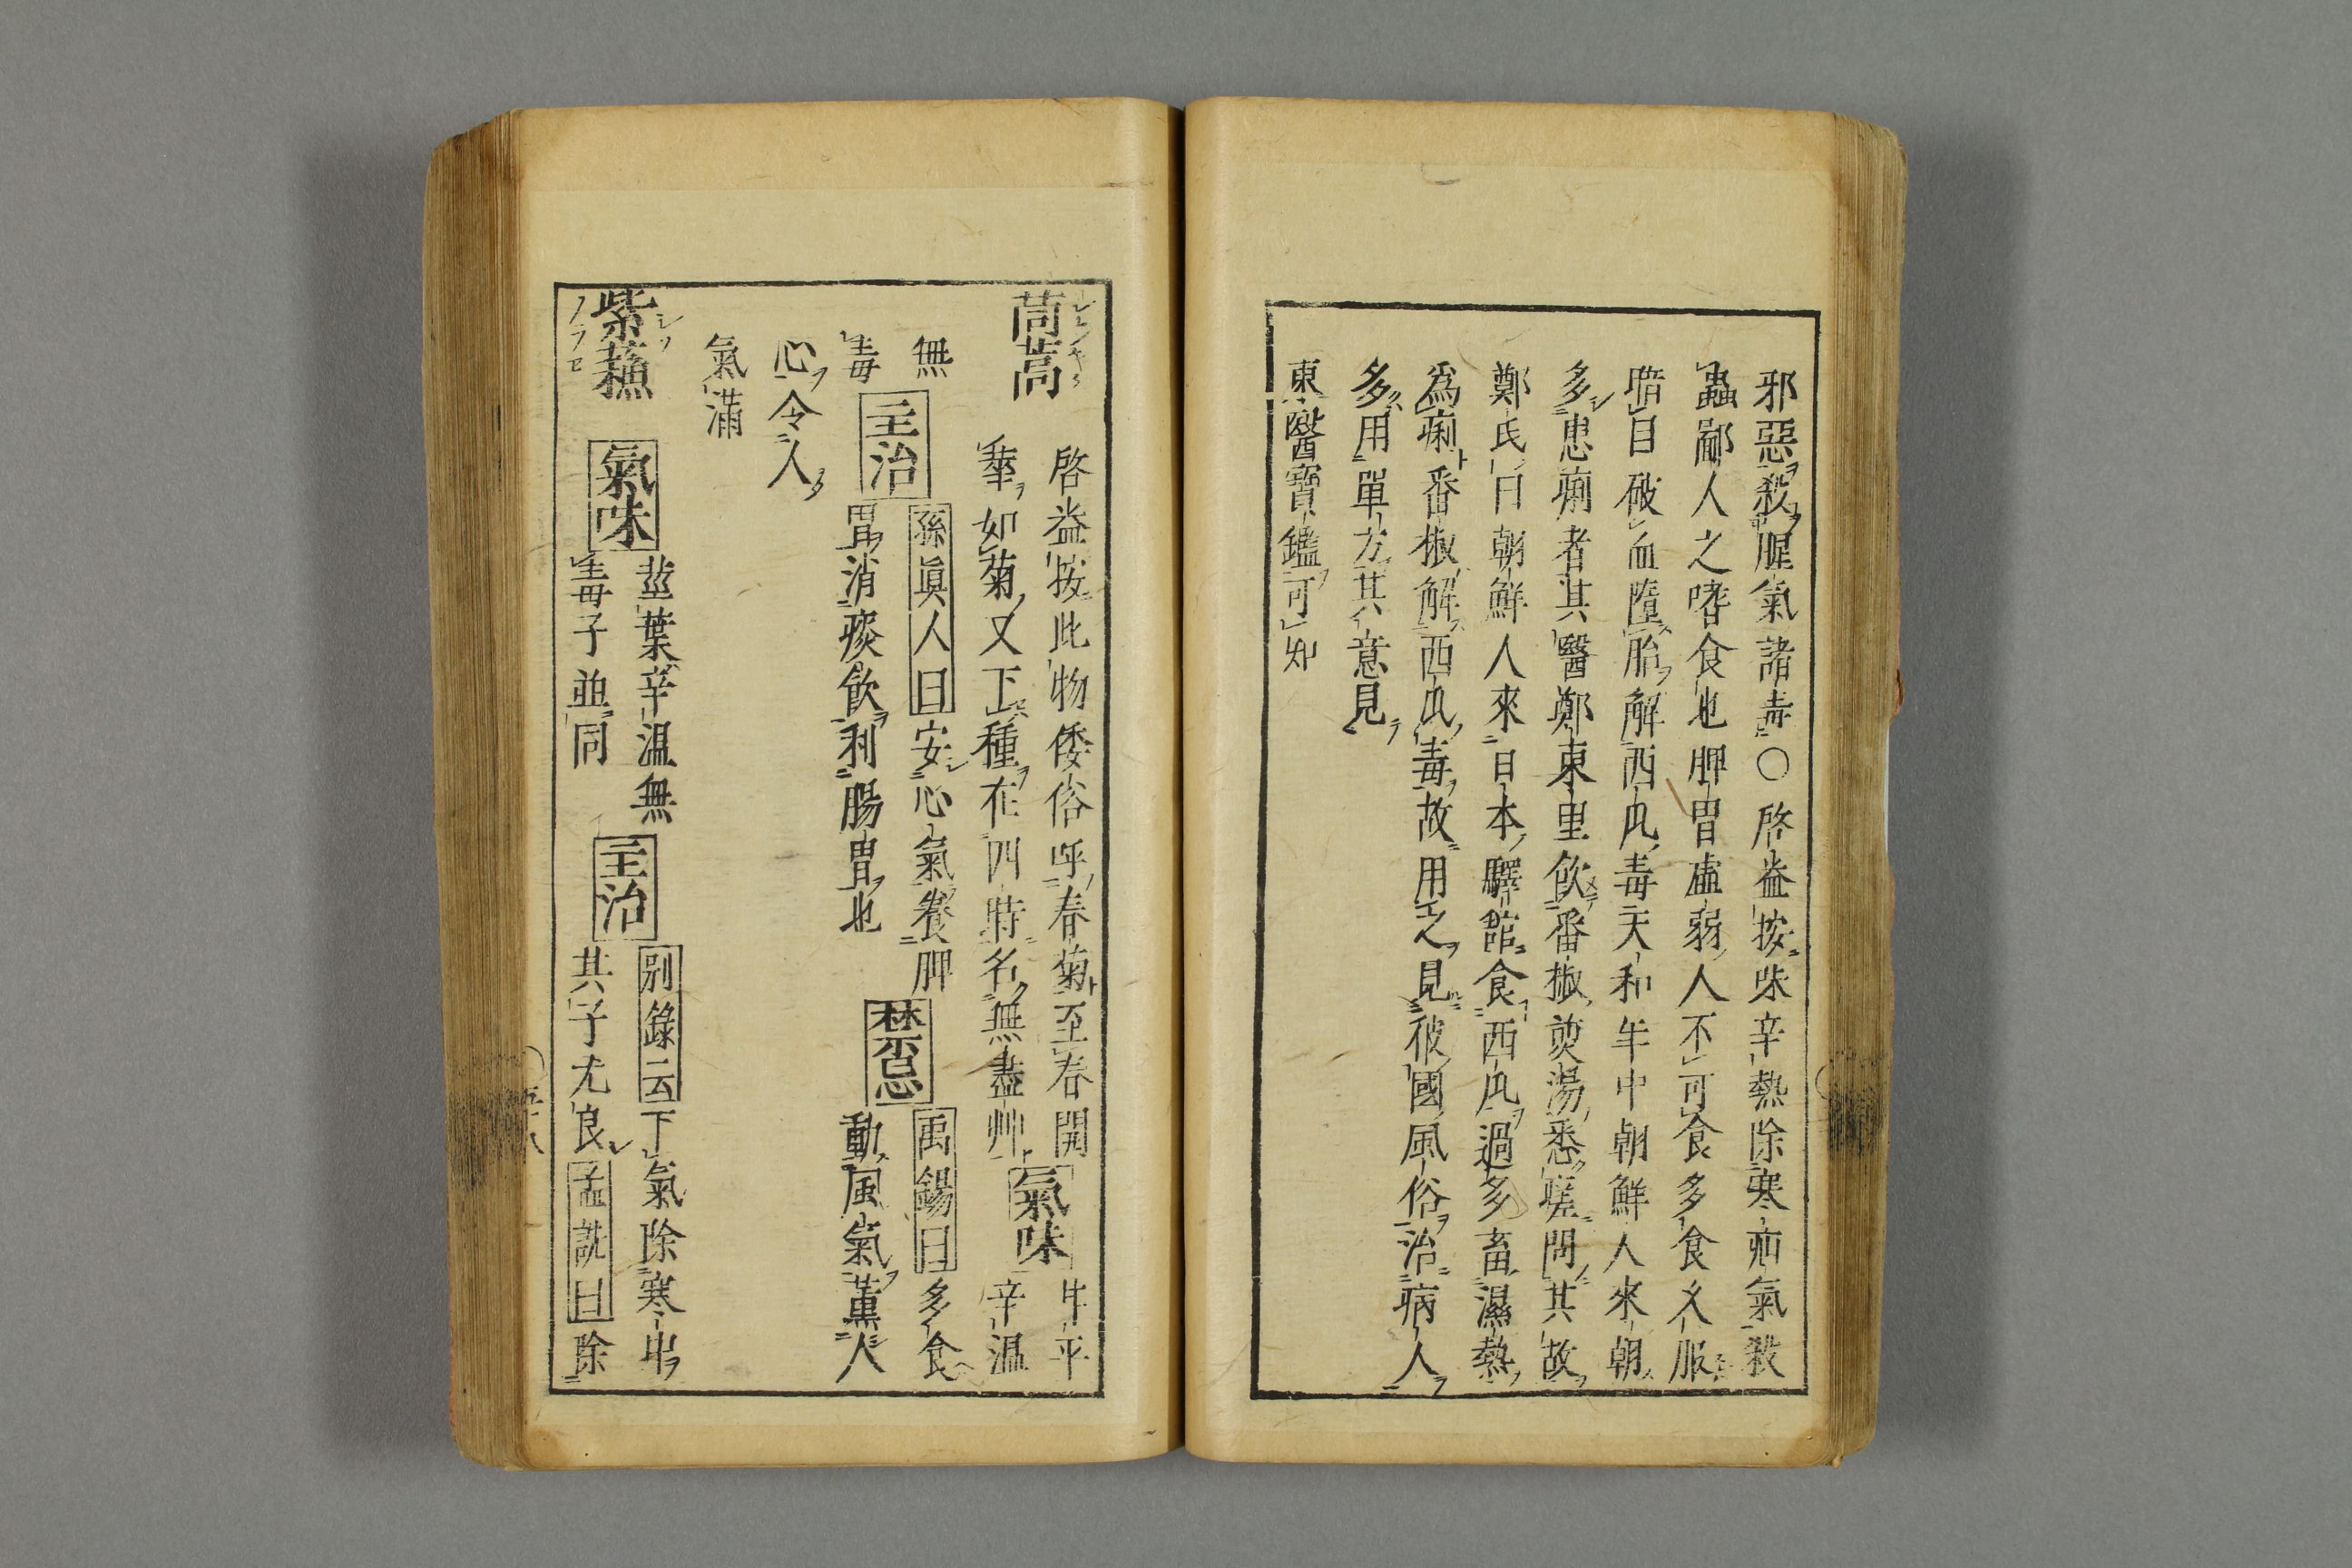 邪惡殺腥氣諸毒○啓益按味辛熱除寒疝氣殺
蟲鄙人之嗜食也脾胃虛弱人不可食多食久服
暗目破血墮胎解西瓜毒天和年中朝鮮人來朝
多患痢者其醫鄭東里飲番椒煎湯悉瘥問其故
鄭氏曰朝鮮人來日本驛館食西瓜過多畜濕熱
為痢番椒解西瓜毒故用之見彼國風俗治病人
多用單方其意見
東醫寶鑑可知
茼蒿
啓益按此物倭俗呼春菊至春開
華如菊又下種在四時名無盡艸
氣味
牛平
辛溫
無
毒
主治
孫眞人曰安心氣養脾
胃消痰飲利腸胃也
禁忌
禹錫曰多食
動風氣薰人
心令人
氣滿
紫蘇
氣味
莖葉辛溫無
毒子並同
主治
別錄云下氣除寒中
其子尤良孟詵曰除